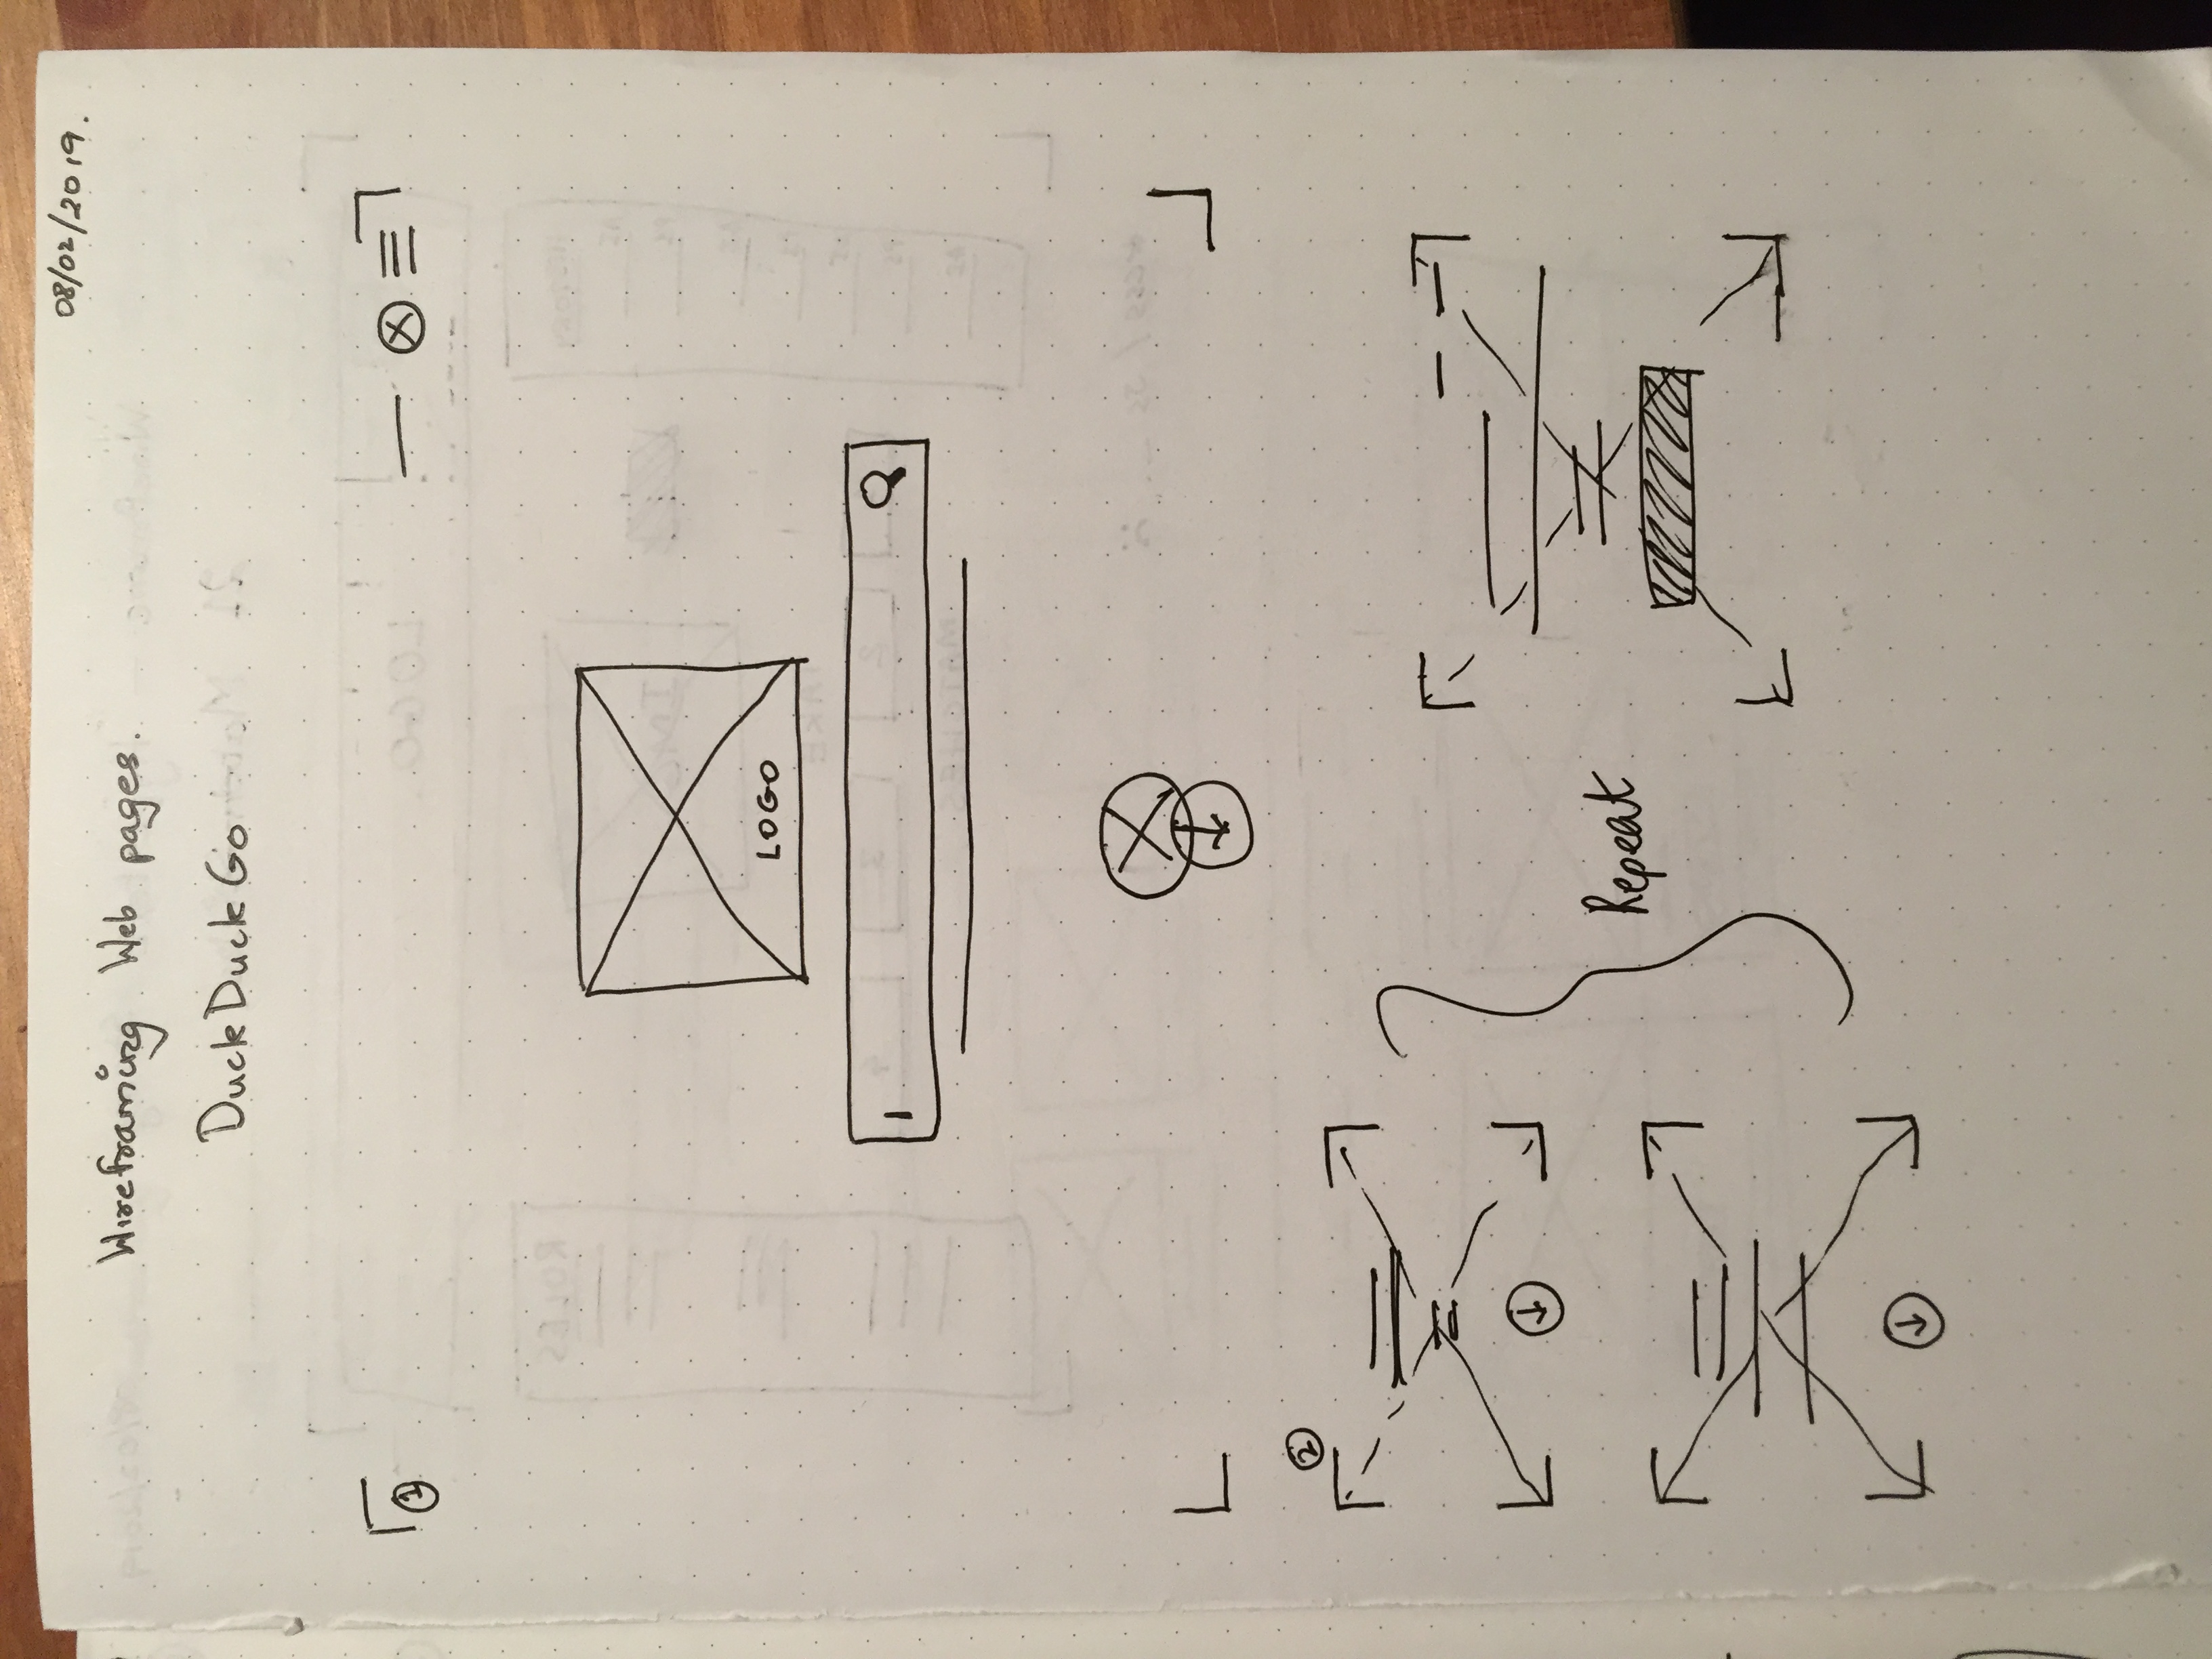 08/02/2019.
Wireframing Web pages.
DuckDuckGo
1
LOGO
2
Repeat